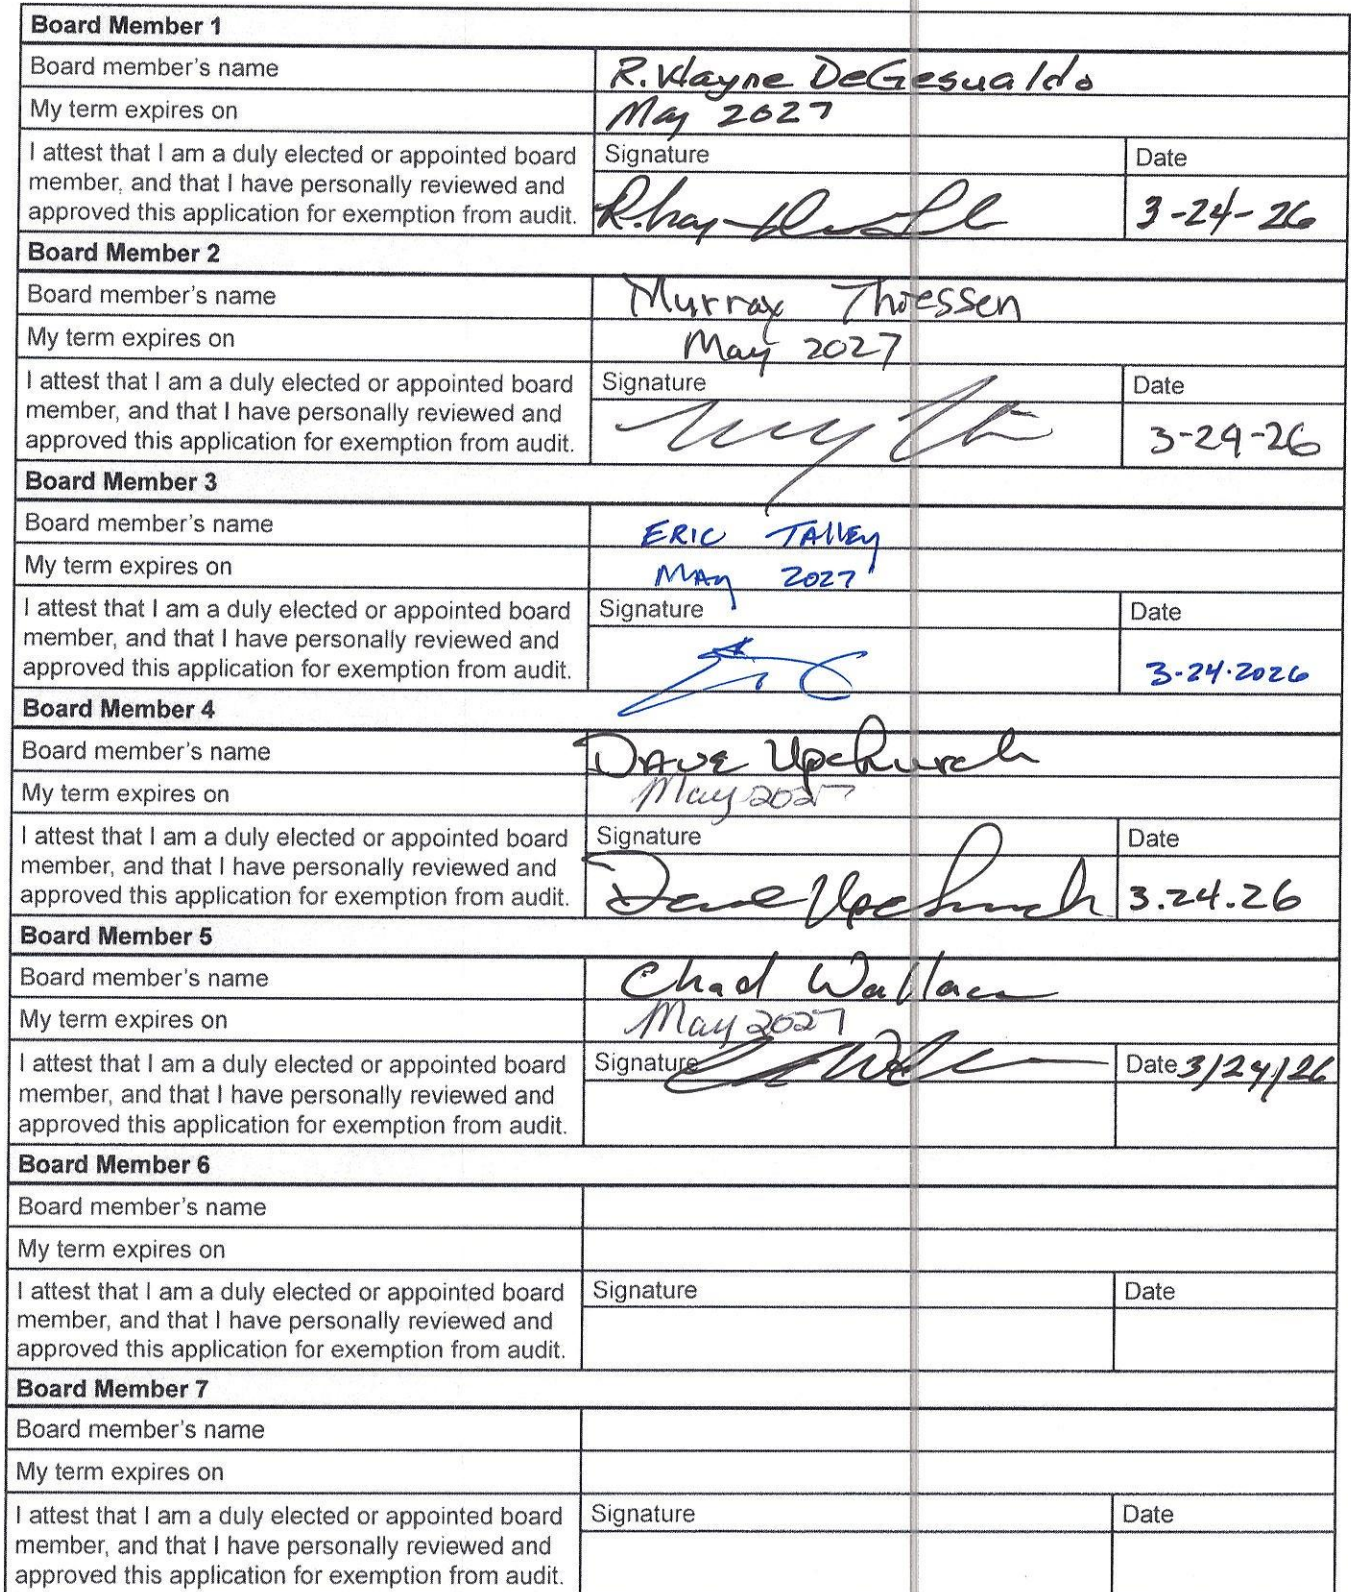 Board Member 1
Board member's name R. Wayne DeGesualdo
My term expires on May 2027
I attest that I am a duly elected or appointed board Signature Date
member, and that I have personally reviewed and
approved this application for exemption from audit. 3-24-26
Board Member 2
Board member's name Murray Thiessen
My term expires on May 2027
I attest that I am a duly elected or appointed board Signature Date
member, and that I have personally reviewed and
approved this application for exemption from audit. 3-24-26
Board Member 3
Board member's name ERIC TAllEy
My term expires on MAy 2027
I attest that I am a duly elected or appointed board Signature Date
member, and that I have personally reviewed and
approved this application for exemption from audit. 3-24-2026
Board Member 4
Board member's name DAVE Upchurch
My term expires on May 2027
I attest that I am a duly elected or appointed board Signature Date
member, and that I have personally reviewed and
approved this application for exemption from audit. Dave Upchurch 3.24.26
Board Member 5
Board member's name Chad Wallace
My term expires on May 2027
I attest that I am a duly elected or appointed board Signature Date 3/24/26
member, and that I have personally reviewed and
approved this application for exemption from audit.
Board Member 6
Board member's name
My term expires on
I attest that I am a duly elected or appointed board Signature Date
member, and that I have personally reviewed and
approved this application for exemption from audit.
Board Member 7
Board member's name
My term expires on
I attest that I am a duly elected or appointed board Signature Date
member, and that I have personally reviewed and
approved this application for exemption from audit.